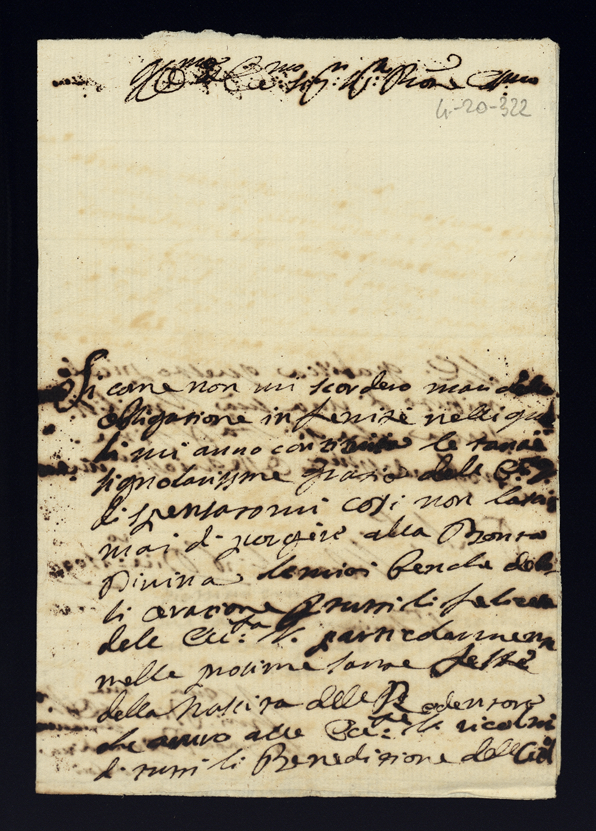 Ill.mo et Ecc.mo Sig.r Sig.r Pron. Oss.mo
4-20-322
Si come non mi scorderò mai delle
obligatione infenite nelli qua
li mi anno constituito le tante
signolarissime grazie delle Ecc.
dispensatomi così non lascio
mai di porgere alla Bontà
Divina le mioi benche debo
li oracione p tutti li felicita
delle Ecc.ze V. particolarmente
nelle prosime sante feste
della Nascita delle Redentore
che auuo alle Ecc.ze V. ricolmi
di tutti li Benedizione delle Ciel